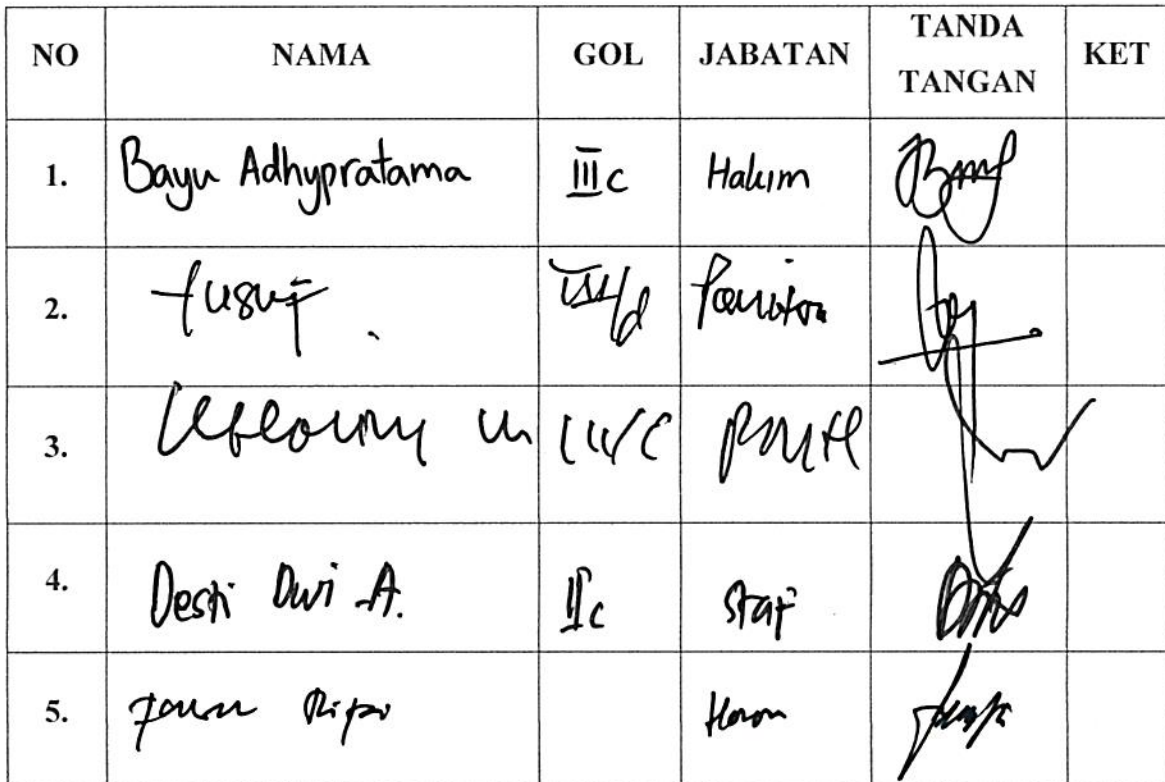 NO NAMA GOL JABATAN TANDA TANGAN KET
1. Bayu Adhypratama III c Hakim
2. Yusuf III/d Panitera
3. III/C
4. Desti Dwi A. II c Staf
5. Honor